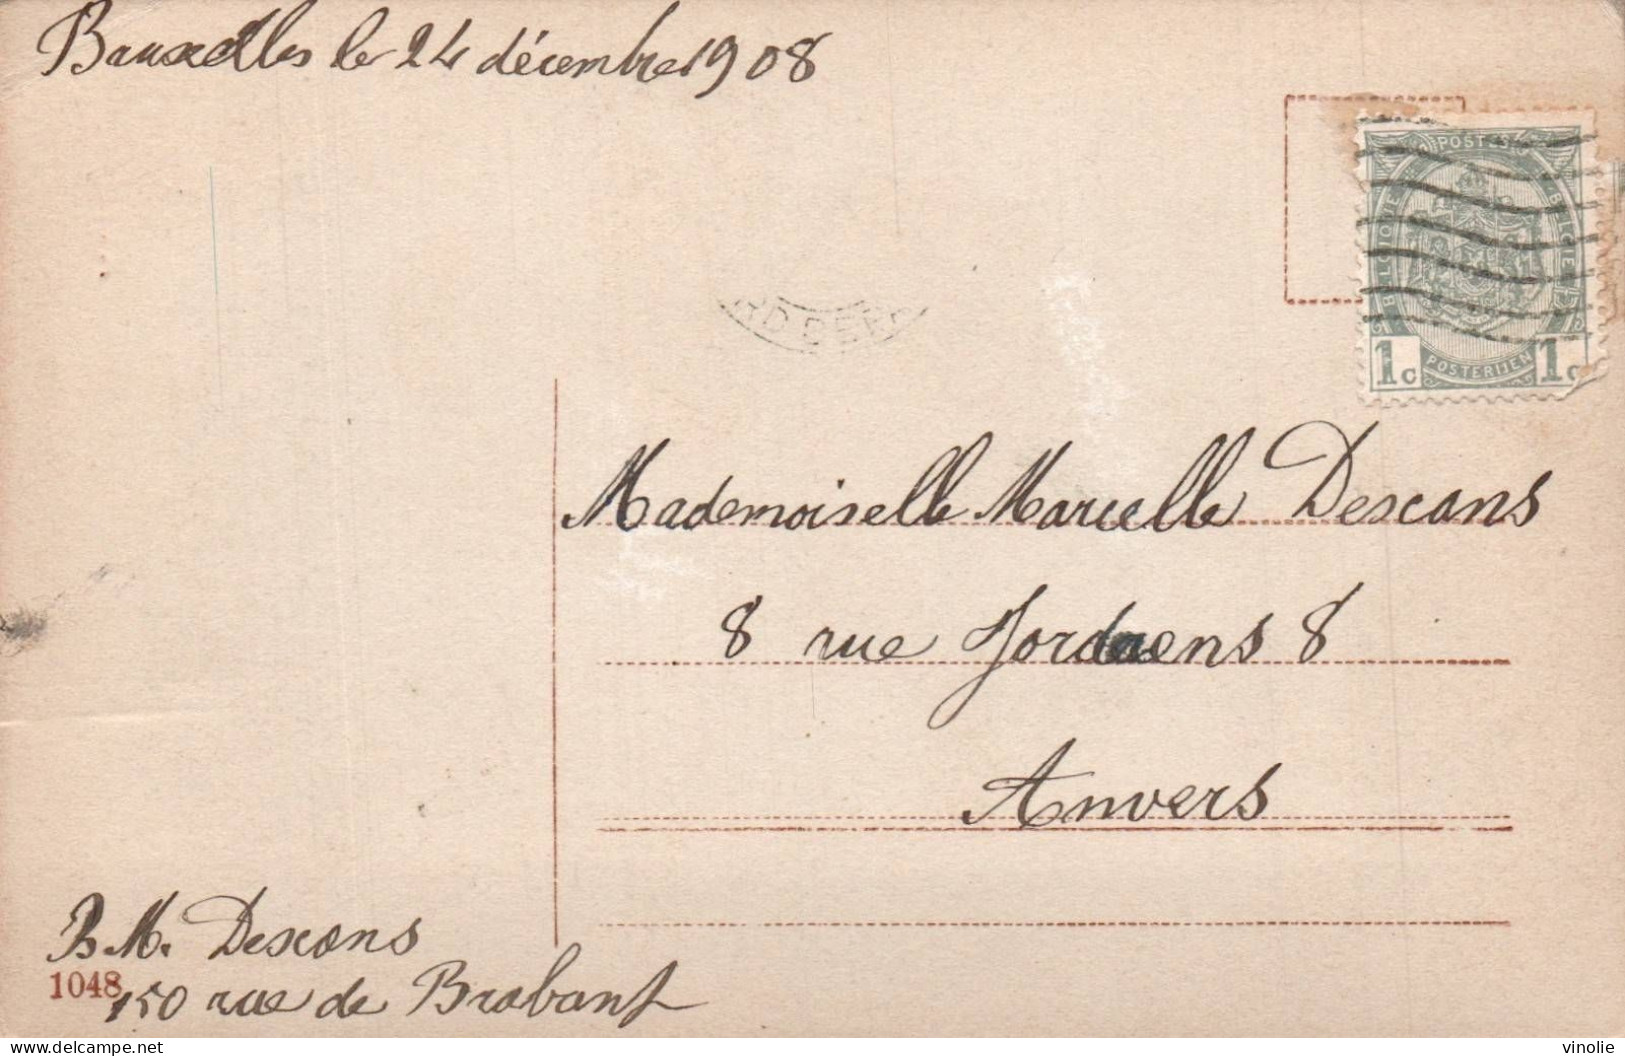 Bruxelles le 24 décembre 1908
POSTES
BELGIQUE
BELGIË
1c POSTERIJEN 1c
Mademoiselle Marcelle Descans
8 rue Jordaens 8
Anvers
B. M. Descans
1048
150 rue de Brabant
delcampe.net
vinolie